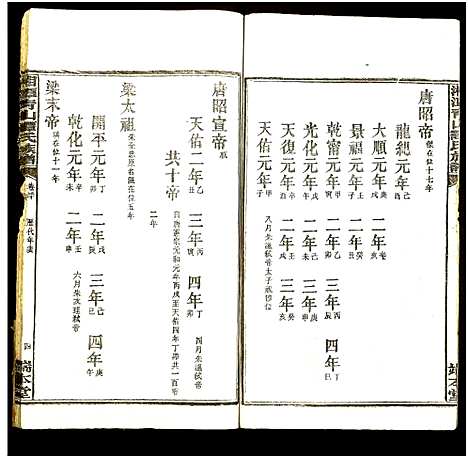 唐昭帝 曄在位十六年
龍紀元年 己酉
大順元年 庚戌 二年 辛亥
景福元年 壬子 二年 癸丑
乾甯元年 甲寅 二年 乙卯 三年 丙辰 四年 丁巳
光化元年 戊午 二年 己未 三年 庚申
天復元年 辛酉 二年 壬戌 三年 癸亥
天佑元年 甲子 八月朱溫弒帝太子柷即位
端本堂
唐昭宣帝 柷
天佑二年 乙丑 三年 丙寅 四年 丁卯 四月朱溫弒帝
共十帝 自唐憲宗元和元年丙戌至天佑四年丁卯共一百零二年
梁太祖 朱全忠原名溫在位五年
開平元年 丁卯 二年 戊辰 三年 己巳 四年 庚午
乾化元年 辛未 二年 壬申 六月朱友珪弒帝
梁末帝 瑱在位十一年
湘潭青山譚氏族譜 歷代年表 端本堂